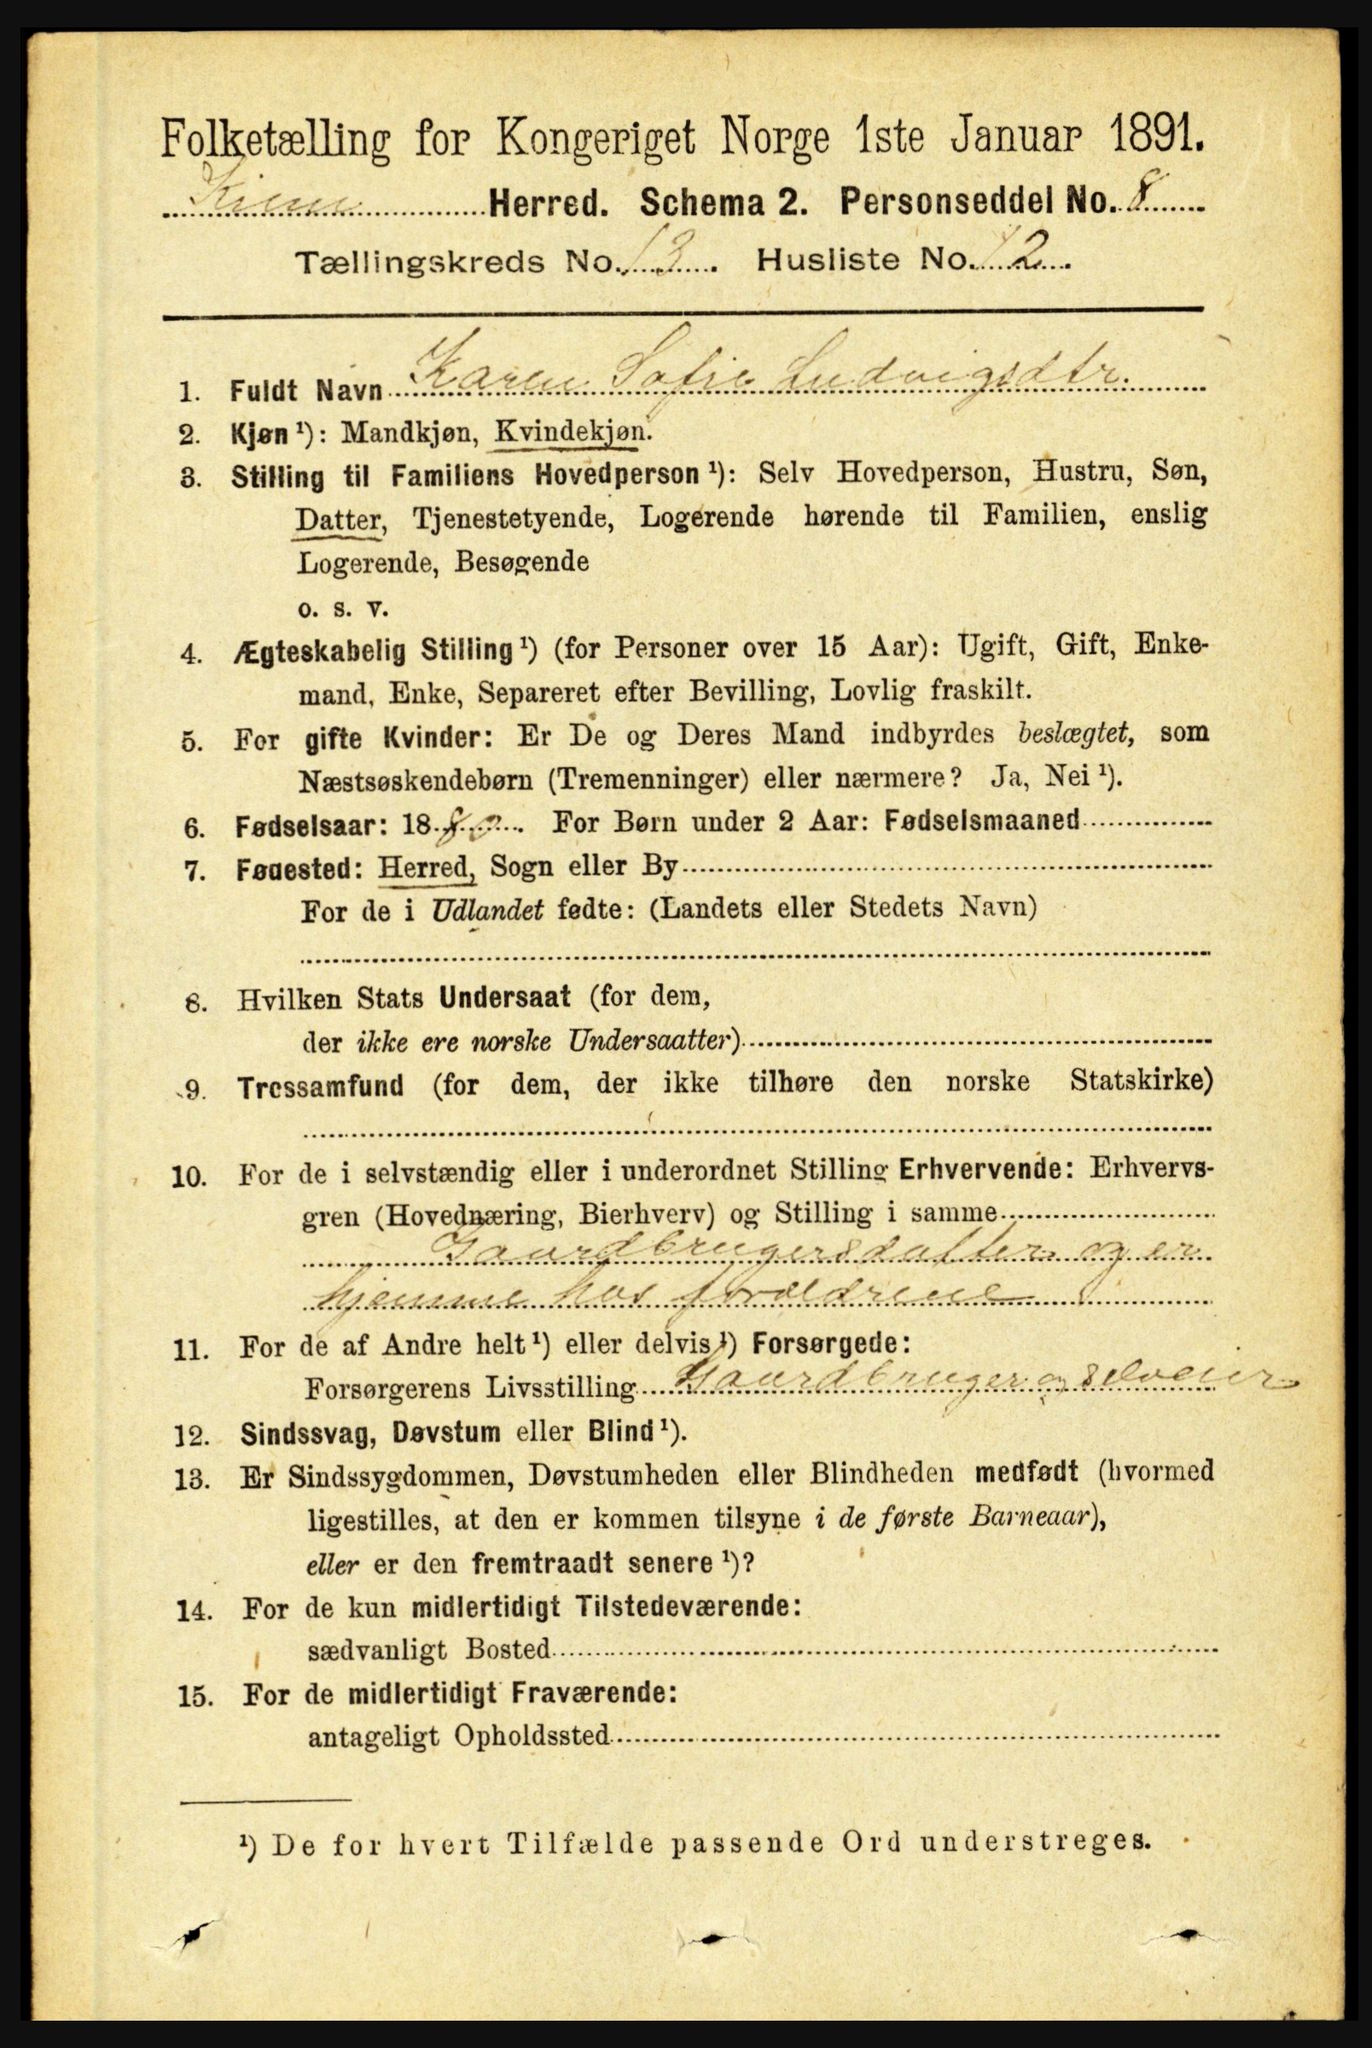 Folketælling for Kongeriget Norge 1ste Januar 1891.
Kinn Herred. Schema 2. Personseddel No. 8
Tællingskreds No. 13. Husliste No. 12.
1. Fuldt Navn Karen Sofie Ludvigsdtr.
2. Kjøn¹): Mandkjøn, Kvindekjøn.
3. Stilling til Familiens Hovedperson¹): Selv Hovedperson, Hustru, Søn,
Datter, Tjenestetyende, Logerende hørende til Familien, enslig
Logerende, Besøgende
o. s. v.
4. Ægteskabelig Stilling¹) (for Personer over 15 Aar): Ugift, Gift, Enke-
mand, Enke, Separeret efter Bevilling, Lovlig fraskilt.
5. For gifte Kvinder: Er De og Deres Mand indbyrdes beslægtet, som
Næstsøskendebørn (Tremenninger) eller nærmere? Ja, Nei¹).
6. Fødselsaar: 18 . For Børn under 2 Aar: Fødselsmaaned
7. Fødested: Herred, Sogn eller By
For de i Udlandet fødte: (Landets eller Stedets Navn)
8. Hvilken Stats Undersaat (for dem,
der ikke ere norske Undersaatter)
9. Trossamfund (for dem, der ikke tilhøre den norske Statskirke)
10. For de i selvstændig eller i underordnet Stilling Erhvervende: Erhvervs-
gren (Hovednæring, Bierhverv) og Stilling i samme
Gaardbrugersdatter og er
hjemme hos forældrene
11. For de af Andre helt¹) eller delvis¹) Forsørgede:
Forsørgerens Livsstilling Gaardbruger og selveier
12. Sindssvag, Døvstum eller Blind¹).
13. Er Sindssygdommen, Døvstumheden eller Blindheden medfødt (hvormed
ligestilles, at den er kommen tilsyne i de første Barneaar),
eller er den fremtraadt senere¹)?
14. For de kun midlertidigt Tilstedeværende:
sædvanligt Bosted
15. For de midlertidigt Fraværende:
antageligt Opholdssted
¹) De for hvert Tilfælde passende Ord understreges.